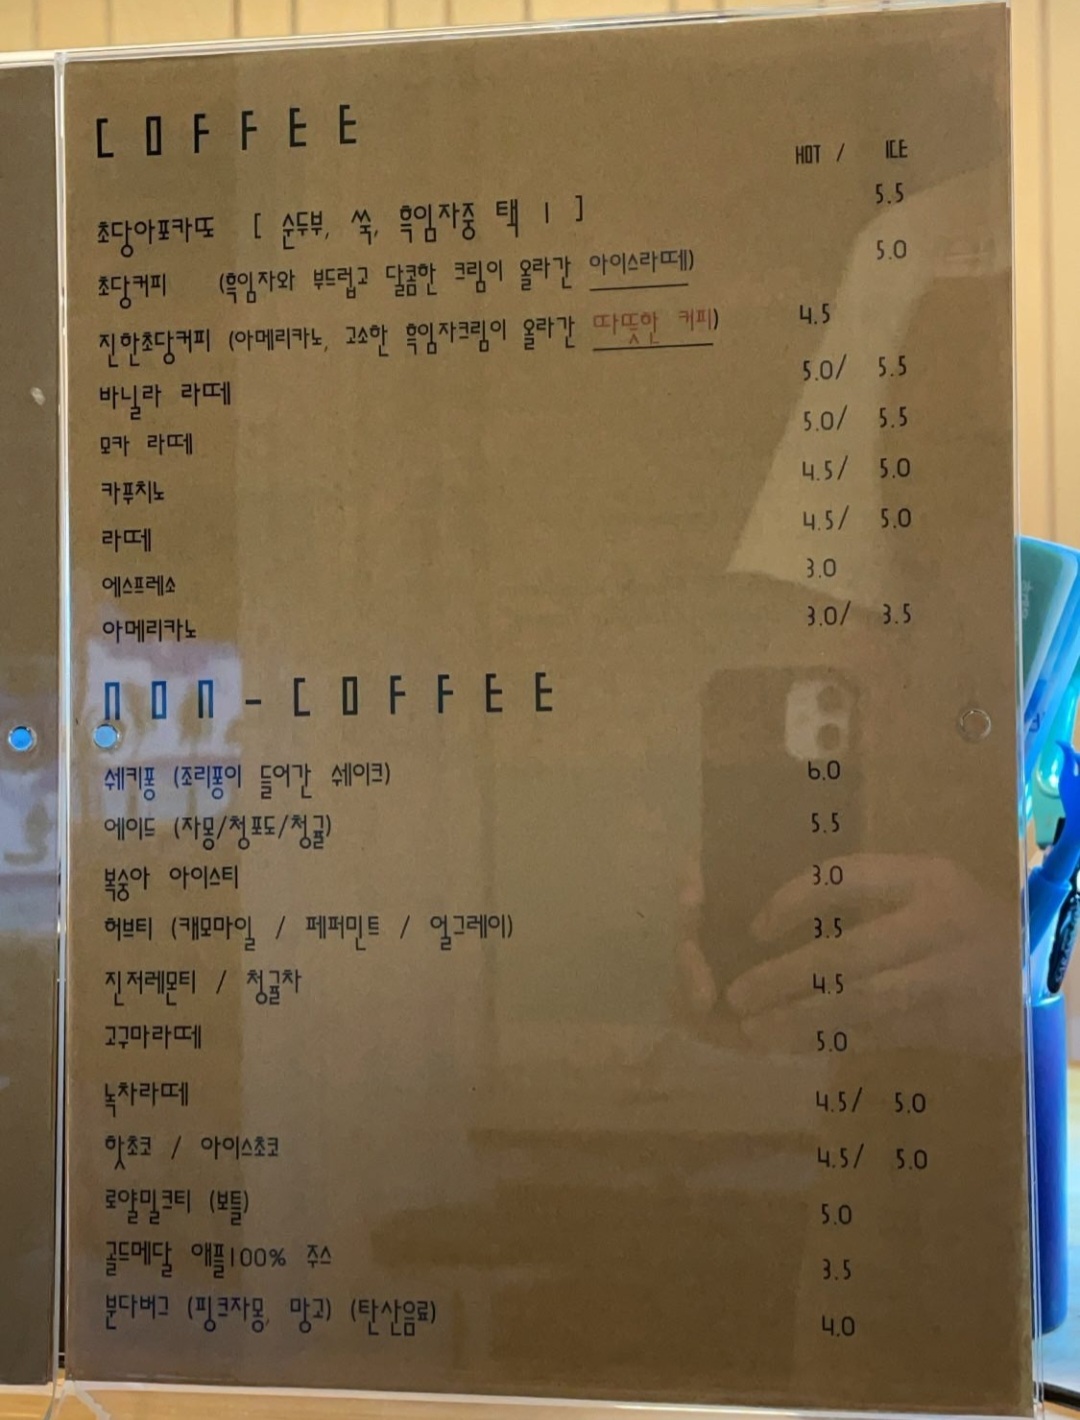 COFFEE
HOT / ICE
초당아포카또 [ 순두부, 쑥, 흑임자중 택 1 ] 5.5
초당커피 (흑임자와 부드럽고 달콤한 크림이 올라간 아이스라떼) 5.0
진한초당커피 (아메리카노, 고소한 흑임자크림이 올라간 따뜻한 커피) 4.5
바닐라 라떼 5.0/ 5.5
모카 라떼 5.0/ 5.5
카푸치노 4.5/ 5.0
라떼 4.5/ 5.0
에스프레소 3.0
아메리카노 3.0/ 3.5
NON-COFFEE
쉐키퐁 (조리퐁이 들어간 쉐이크) 6.0
에이드 (자몽/청포도/청귤) 5.5
복숭아 아이스티 3.0
허브티 (캐모마일 / 페퍼민트 / 얼그레이) 3.5
진저레몬티 / 청귤차 4.5
고구마라떼 5.0
녹차라떼 4.5/ 5.0
핫초코 / 아이스초코 4.5/ 5.0
로얄밀크티 (보틀) 5.0
골드메달 애플100% 주스 3.5
분다버그 (핑크자몽, 망고) (탄산음료) 4.0